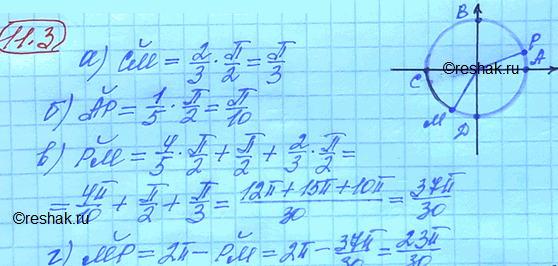 11.3
а) C͝M = 2/3 · π/2 = π/3
б) A͝P = 1/5 · π/2 = π/10
в) P͝M = 4/5 · π/2 + π/2 + 2/3 · π/2 =
= 4π/10 + π/2 + π/3 = (12π + 15π + 10π)/30 = 37π/30
г) M͝P = 2π - P͝M = 2π - 37π/30 = 23π/30
B
P
A
C
M
D
©reshak.ru
©reshak.ru
©reshak.ru